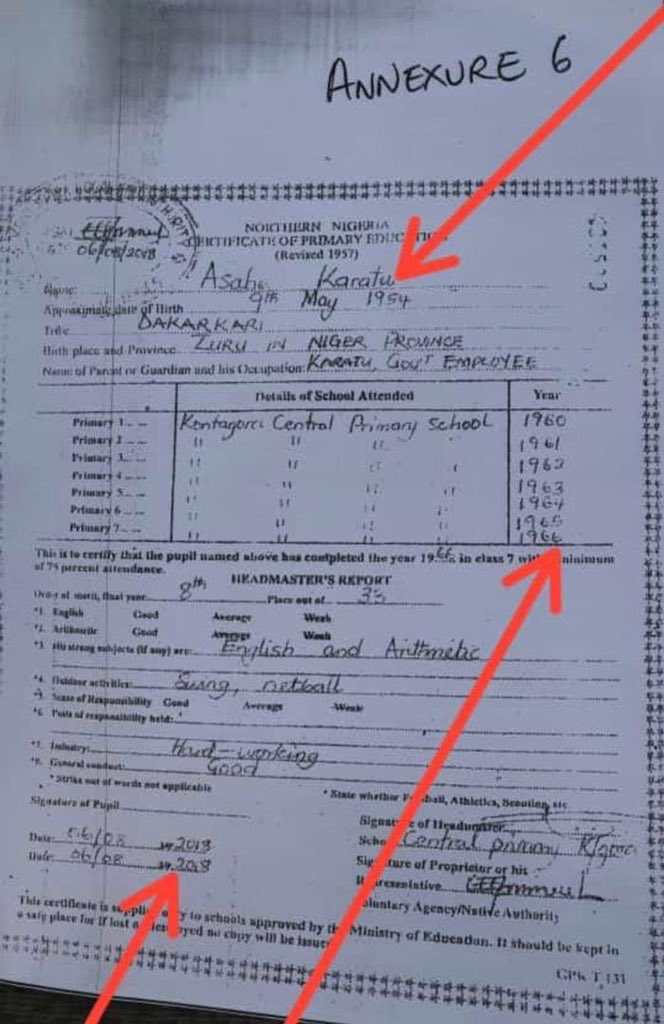 ANNEXURE 6
06/08/2018
NORTHERN NIGERIA
CERTIFICATE OF PRIMARY EDUCATION
(Revised 1957)
Name: Asabe Karatu
Approximate date of Birth 9th May 1954
Tribe DAKARKARI
Birth place and Province ZURU IN NIGER PROVINCE
Name of Parent or Guardian and his Occupation: KARATU, GOV'T EMPLOYEE
Details of School Attended Year
Primary 1 Kontagora Central Primary School 1960
Primary 2 " " " " 1961
Primary 3 " " " " 1962
Primary 4 " " " " 1963
Primary 5 " " " " 1964
Primary 6 " " " " 1965
Primary 7 " " " " 1966
This is to certify that the pupil named above has completed the year 1966 in class 7 with minimum
of 75 percent attendance.
HEADMASTER'S REPORT
Order of merit, final year 8th Place out of 33
*1. English Good Average Weak
*2. Arithmetic Good Average Weak
*3. His strong subjects (if any) are: English and Arithmetic
*4. Outdoor activities: Swing, netball
*5. Sense of Responsibility Good Average Weak
*6. Posts of responsibility held:
*7. Industry: Hard-working
*8. General conduct: Good
* Strike out of words not applicable
* State whether Football, Athletics, Scouting, etc
Signature of Pupil
Signature of Headmaster
Date: 06/08 19 2018
School Central primary K/gora
Date: 06/08 19 2018
Signature of Proprietor or his
Representative
Voluntary Agency/Native Authority
This certificate is supplied only to schools approved by the Ministry of Education. It should be kept in
a safe place for if lost or destroyed no copy will be issued
GPK T 131